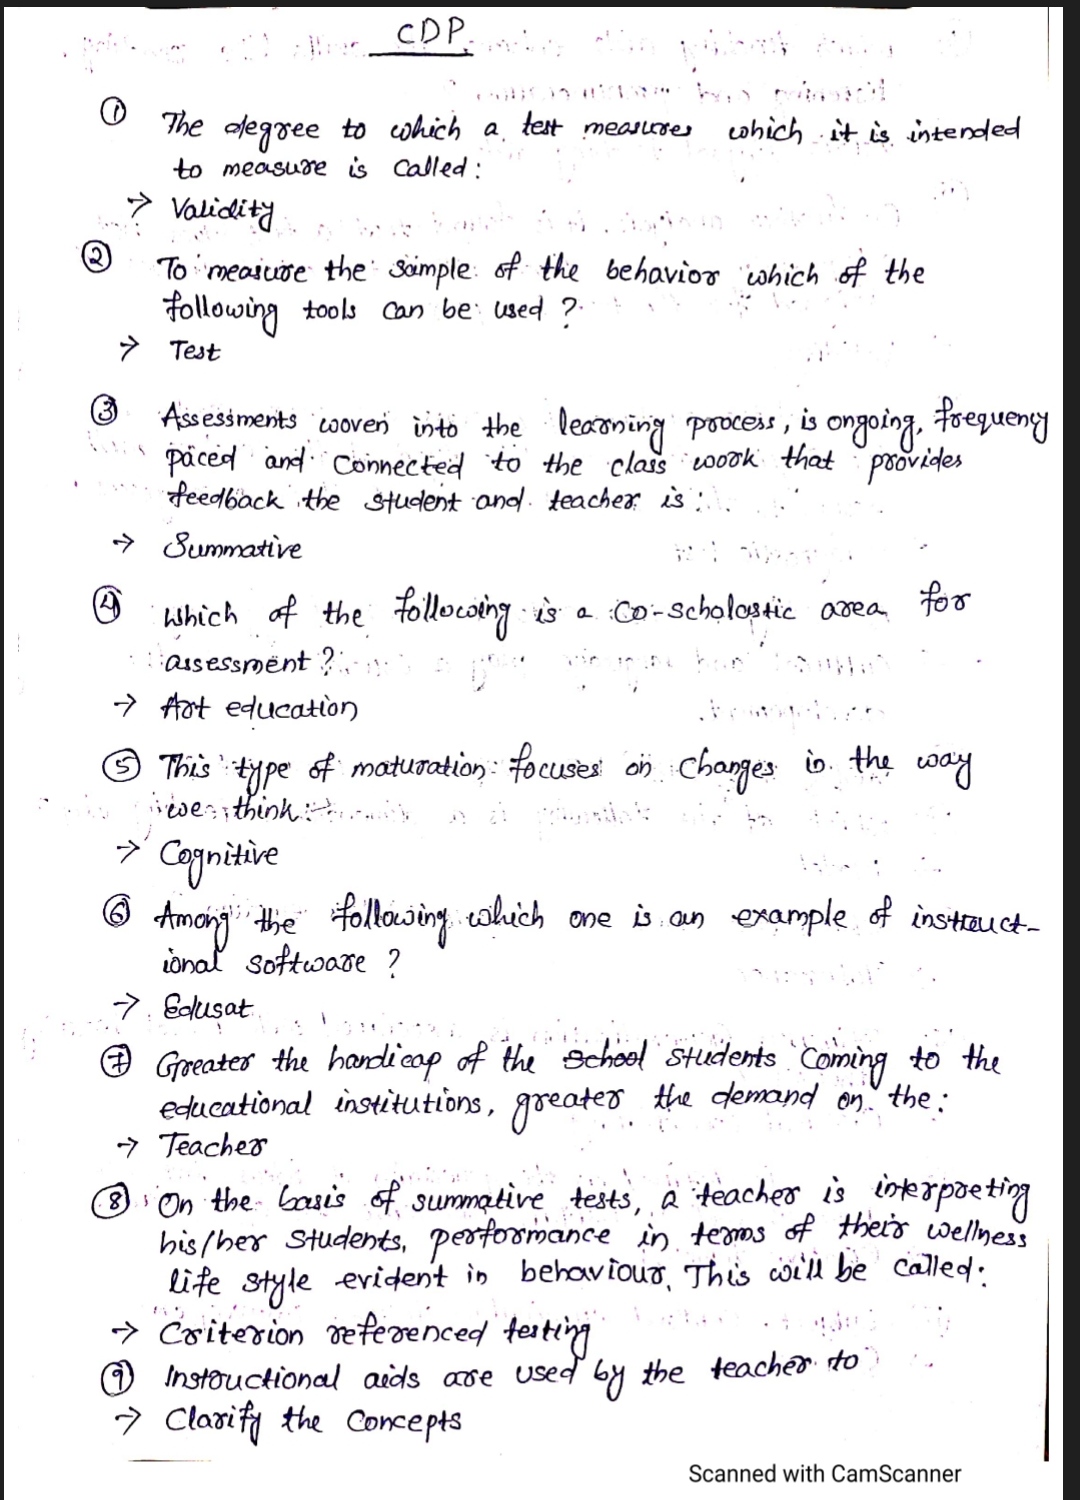 CDP.
① The degree to which a test measures which it is intended
to measure is called :
→ Validity
② To measure the sample of the behavior which of the
following tools can be used ?
→ Test
③ Assessments woven into the learning process, is ongoing, frequency
paced and connected to the class work that provides
feedback the student and teacher is :
→ Summative
④ Which of the following is a co-scholastic area for
assessment ?
→ Art education
⑤ This type of maturation focuses on changes in the way
we think :
→ Cognitive
⑥ Among the following which one is an example of instruct-
ional software ?
→ Edusat
⑦ Greater the handicap of the school students coming to the
educational institutions, greater the demand on the :
→ Teacher
⑧ On the basis of summative tests, a teacher is interpreting
his/her students, performance in terms of their wellness
life style evident in behaviour. This will be called :
→ Criterion referenced testing
⑨ Instructional aids are used by the teacher to
→ Clarify the concepts
Scanned with CamScanner